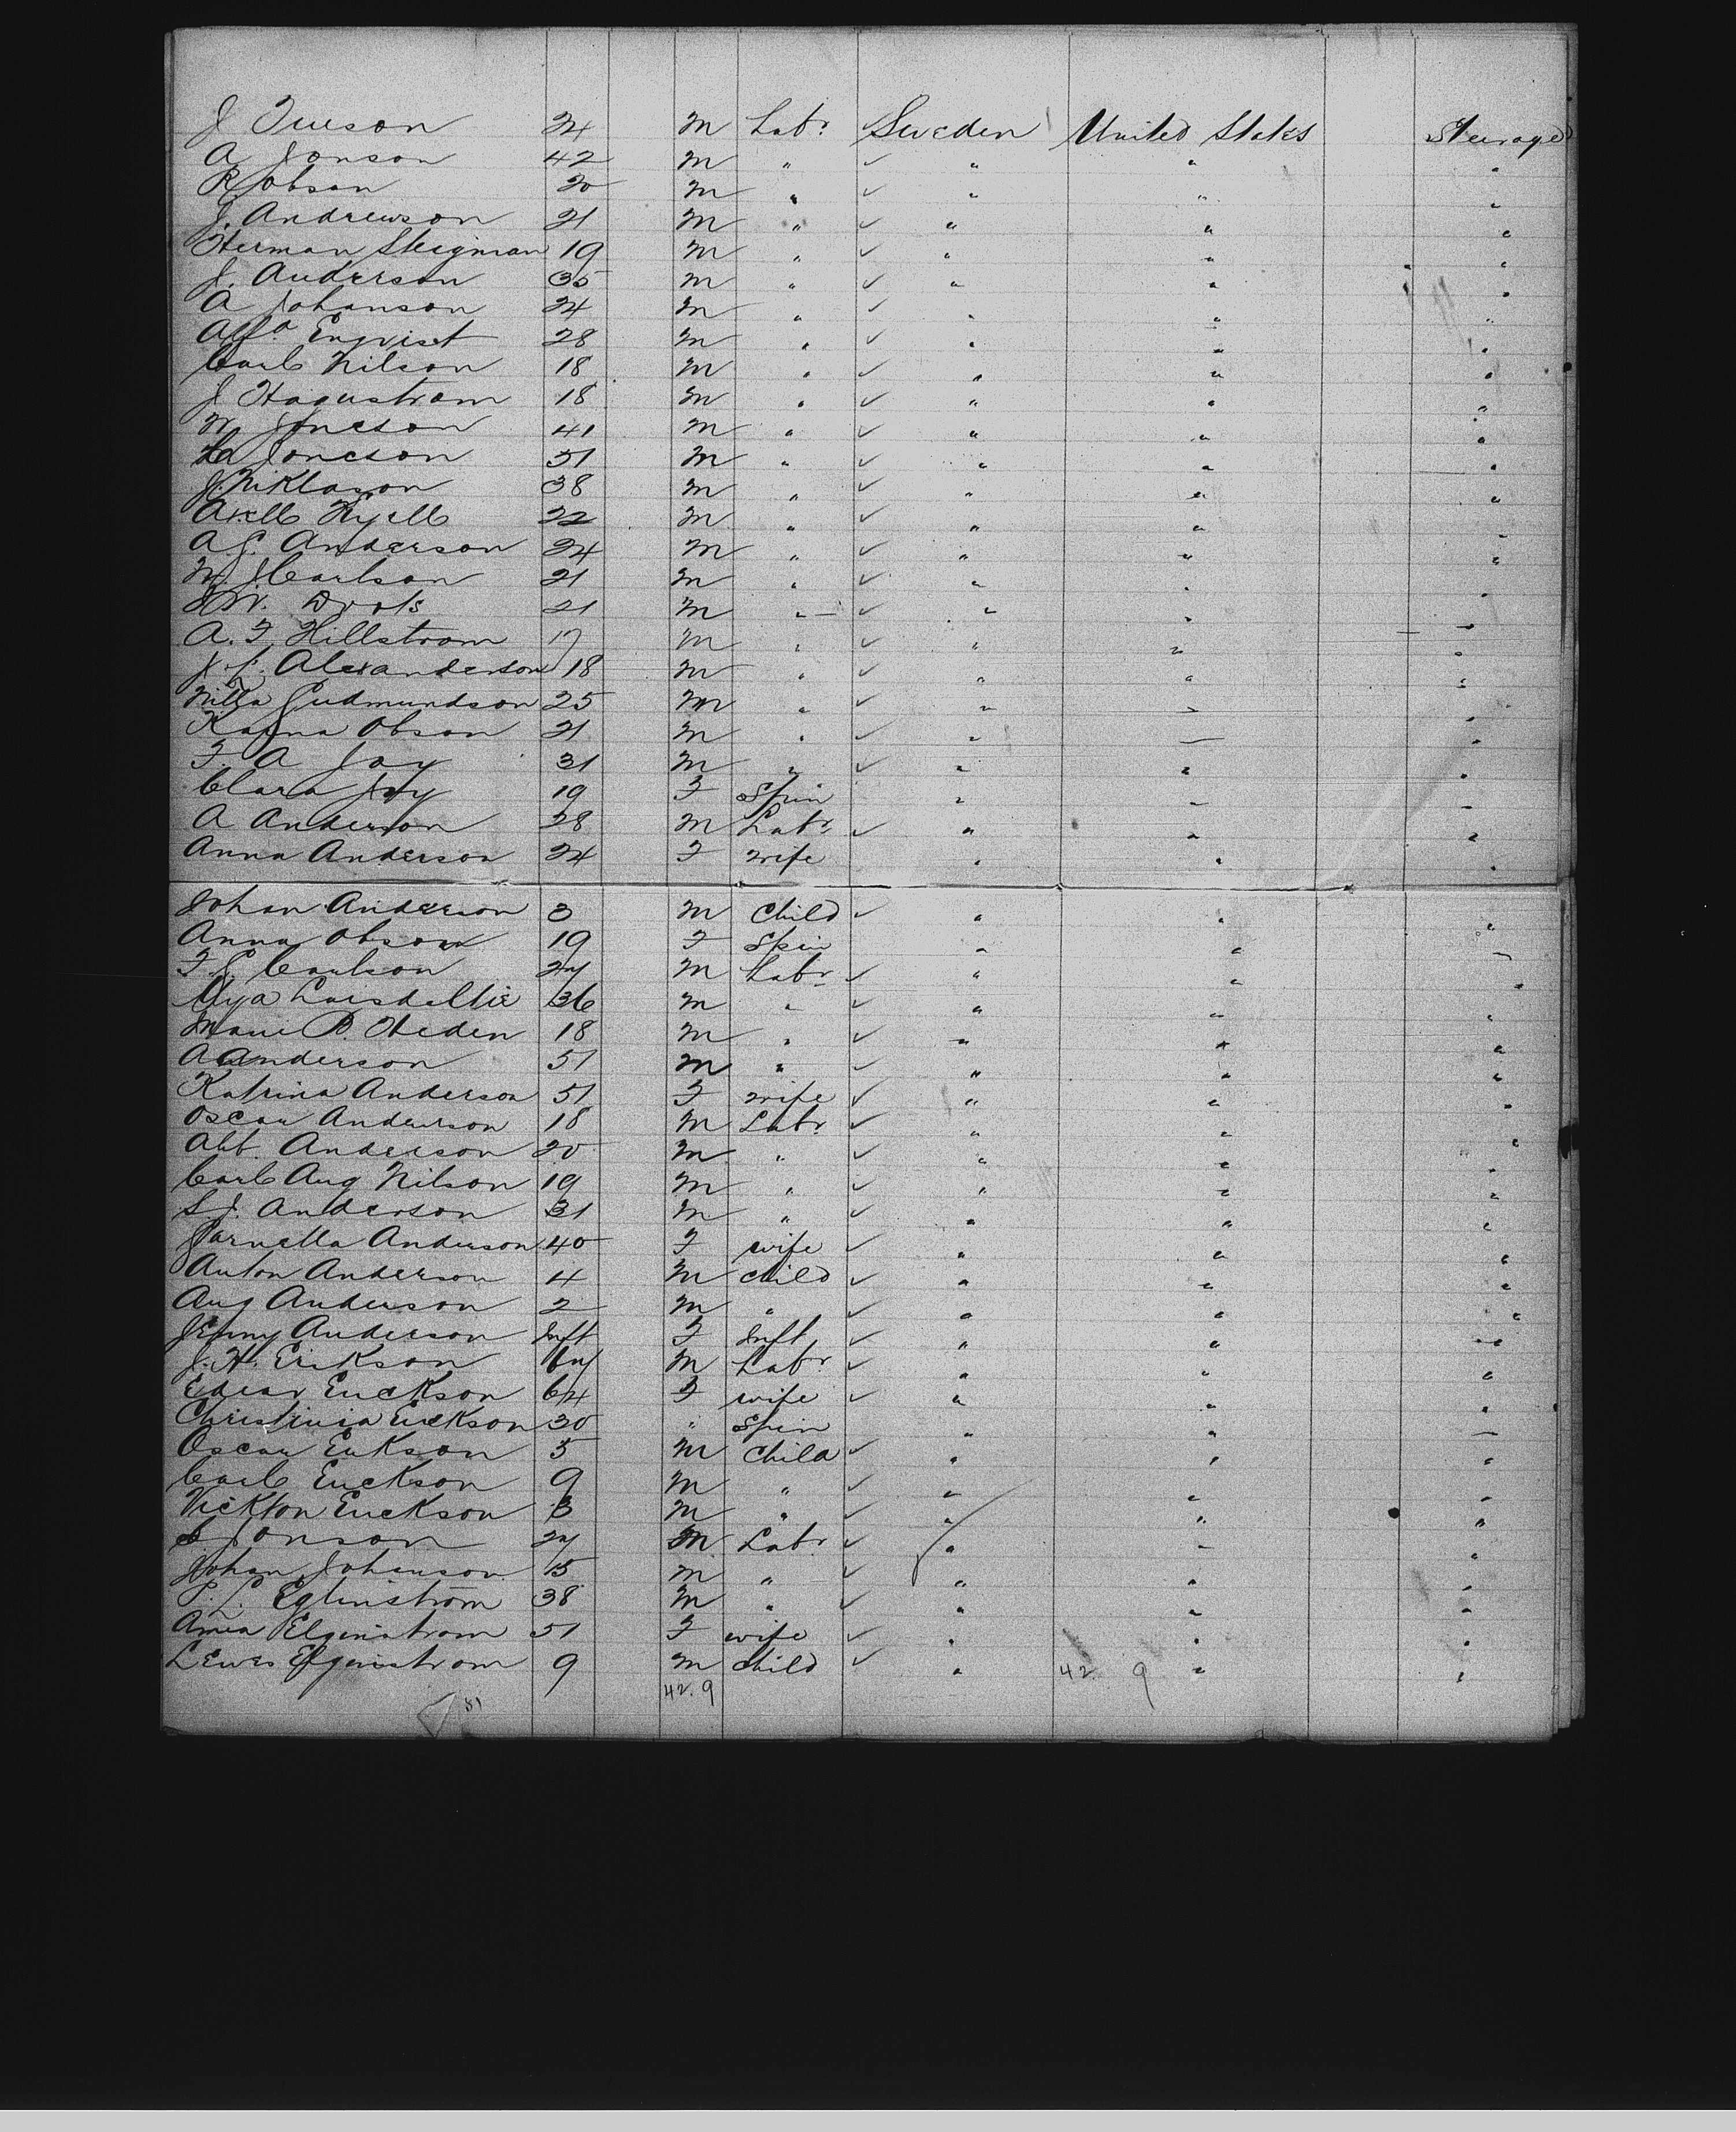 J Iveson 24 M Labr Sweden United States Steerage
A Jonson 42 M " " " "
R Obson 20 M " " " "
J. Andrewson 21 M " " " "
Herman Stegman 19 M " " " "
J. Anderson 35 M " " " "
A Johanson 24 M " " " "
Alfd Enqvist 28 M " " " "
Carl Nilson 18 M " " " "
J Hagustrom 18 M " " " "
N Joneson 41 M " " " "
Joneson 51 M " " " "
J. Niklason 38 M " " " "
Axell Kjell 22 M " " " "
A. G. Anderson 24 M " " " "
N. J Carlson 21 M " " " "
J W. 21 M " " " "
A. F. Hillstrom 17 M " " " "
J. C. Alexanderson 18 M " " " "
Nilla Gudmundson 25 M " " " "
Kajna Obson 21 M " " " "
F. A Joy 31 M " " " "
Clara Joy 19 F Spin " " "
A Anderson 28 M Labr " " "
Anna Anderson 24 F wife " " "
Johan Anderson 3 M Child " " "
Anna Obson 19 F Spin " " "
F. G. Carlson 24 M Labr " " "
36 M " " " "
Marie B. 18 M " " " "
A Anderson 51 M " " " "
Katrina Anderson 51 F wife " " "
Oscar Anderson 18 M Labr " " "
Abb. Anderson 20 M " " " "
Carl Aug Nilson 19 M " " " "
S. J. Anderson 31 M " " " "
Parnella Anderson 40 F wife " " "
Anton Anderson 4 M Child " " "
Aug Anderson 2 M " " " "
Jenny Anderson Inft F Inft " " "
J. H. Erikson M Labr " " "
Erickson 64 F wife " " "
Christinia Erickson 30 " Spin " " "
Oscar Erikson 5 M Child " " "
Carl Erickson 9 M " " " "
Vickton Erickson 3 M " " " "
S Jonson 24 M Labr " " "
Johan Johanson 15 M " " " "
P. L. Eglinstrom 38 M " " " "
Anna Elginstrom 51 F wife " " "
Lewis Elginstrom 9 M Child " 42. 9 " "
51 42. 9